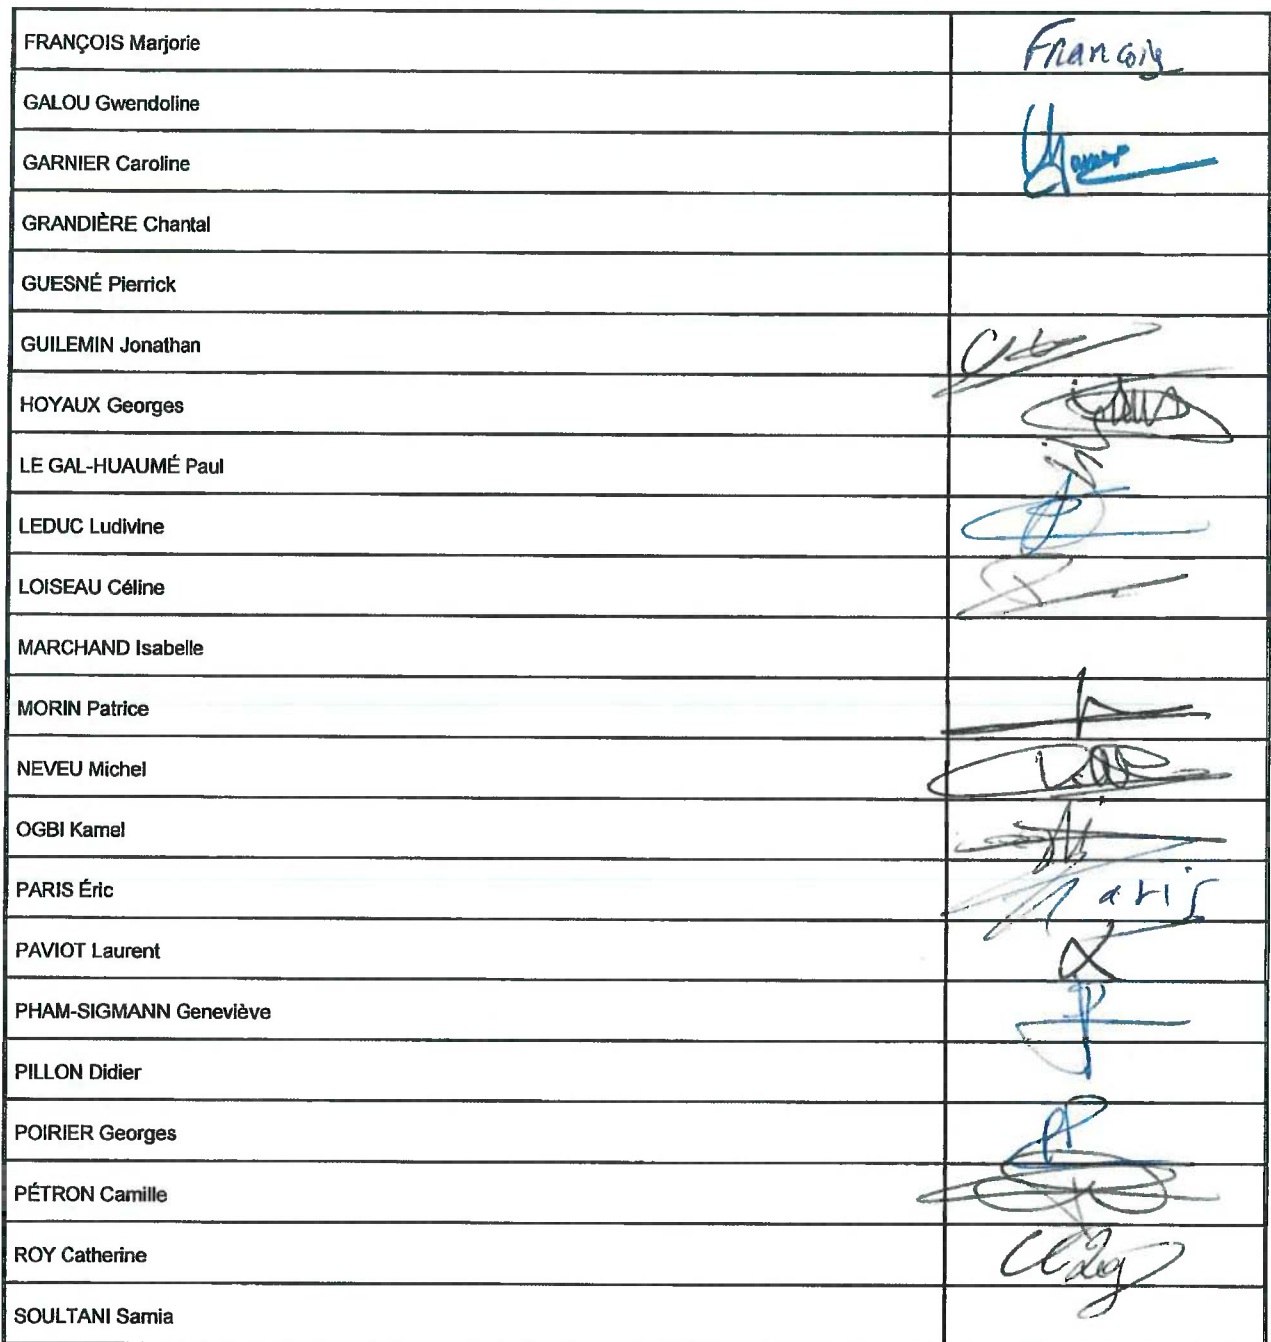 FRANÇOIS Marjorie François
GALOU Gwendoline
GARNIER Caroline
GRANDIÈRE Chantal
GUESNÉ Pierrick
GUILEMIN Jonathan
HOYAUX Georges
LE GAL-HUAUMÉ Paul
LEDUC Ludivine
LOISEAU Céline
MARCHAND Isabelle
MORIN Patrice
NEVEU Michel
OGBI Kamel
PARIS Éric Paris
PAVIOT Laurent
PHAM-SIGMANN Geneviève
PILLON Didier
POIRIER Georges
PÉTRON Camille
ROY Catherine
SOULTANI Samia